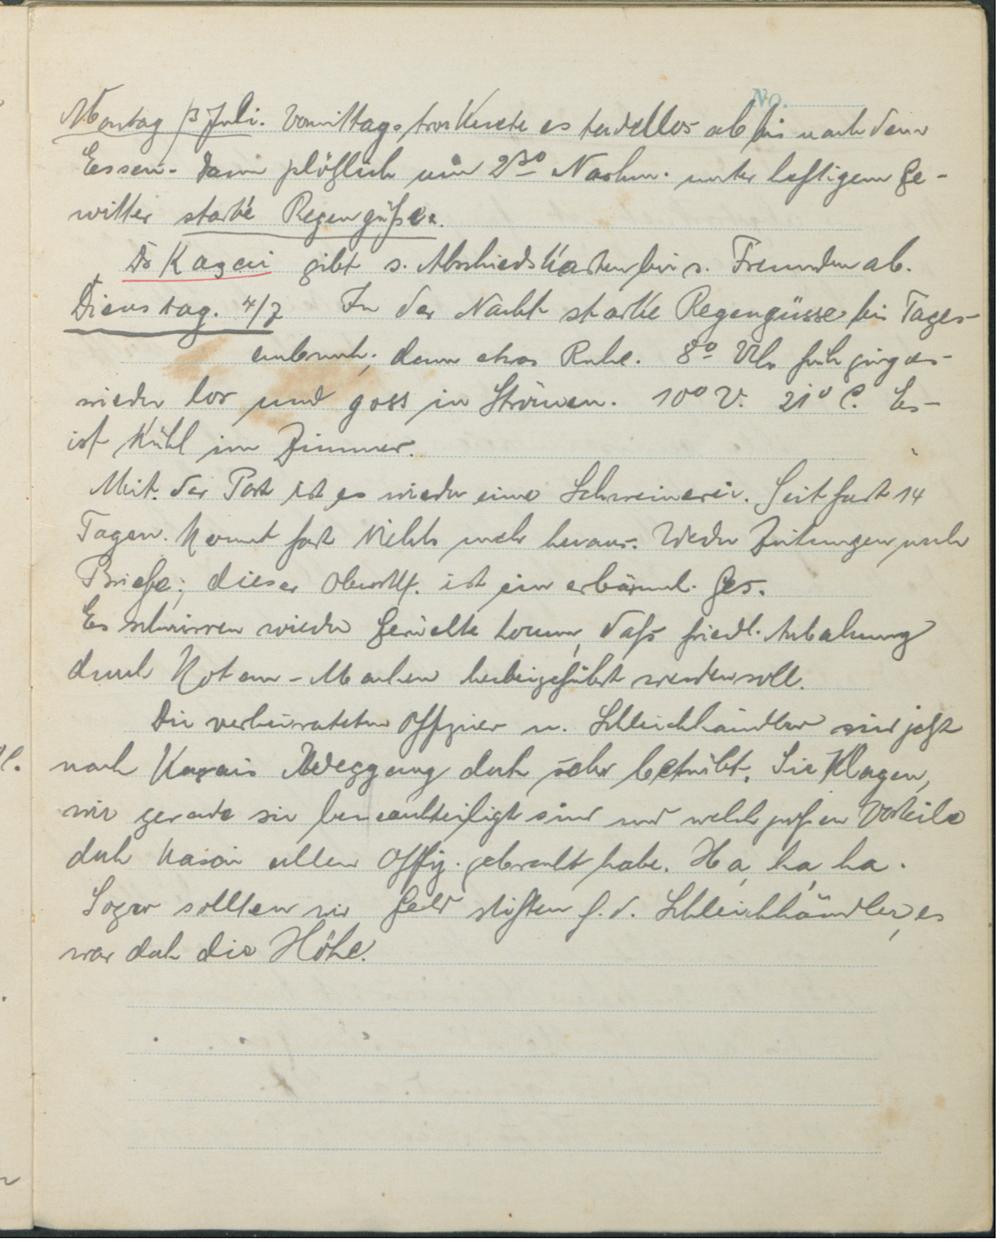 No.
Montag 3 Juli. Vormittags trocknete es tadellos ab bis nach dem
Essen. Dann plötzlich um 2³⁰ Nachm. unter heftigem Ge-
witter starke Regengüße.
Dr Kagai gibt s. Abschiedskarten bei s. Freunden ab.
Dienstag. 4/7 In der Nacht starke Regengüsse bis Tages-
anbruch, dann etwas Ruhe. 8⁰ Uhr früh ging es
wieder los und goss in Strömen. 10⁰ V. 21° C. Es
ist kühl im Zimmer.
Mit der Post ist es wieder eine Schweinerei. Seit fast 14
Tagen kommt fast nichts mehr heraus. Weder Zeitungen noch
Briefe; dieser ist ein erbärml. Ges.
Es schwirren wieder Gerüchte herum, daß friedl. Anbahnung
durch Noten-Machen herbeigeführt werden soll.
Die verheirateten Offizier u. Schleichhändler sind jetzt
nach Kasais Weggang doch sehr betrübt. Sie klagen,
wie gerade sie benachteiligt sind und welch großen Vorteile
doch Kasai allen Offiz. gebracht habe. Ha, ha, ha.
Sogar sollten wir Geld stiften f. d. Schleichhändler, es
war doch die Höhe.